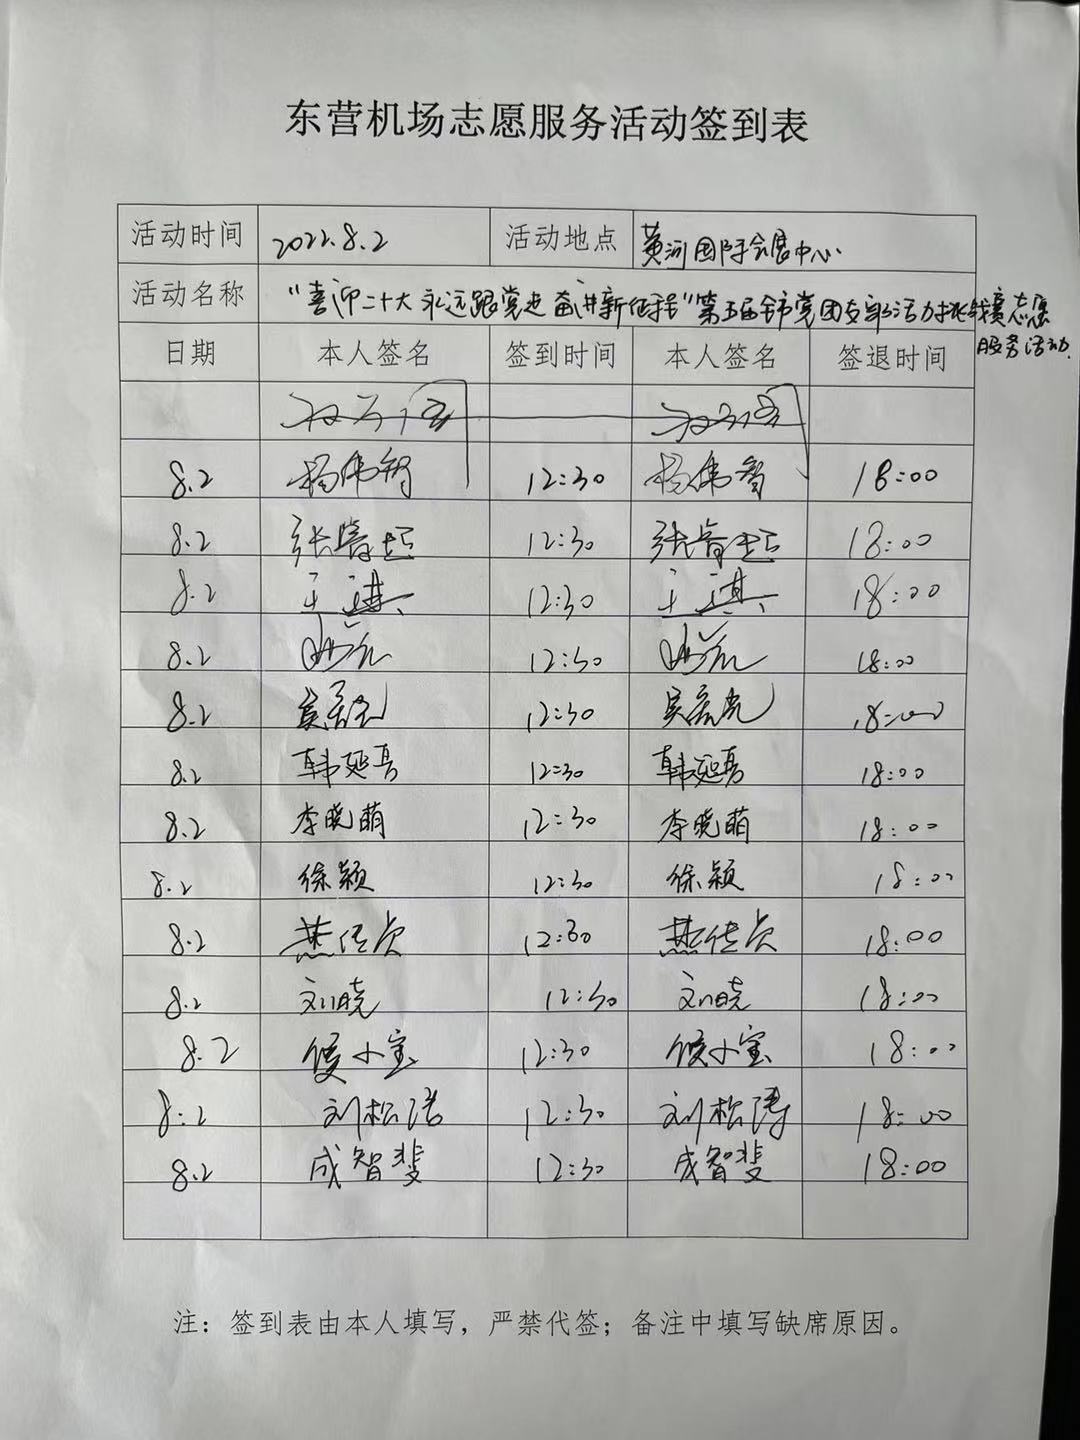 东营机场志愿服务活动签到表
活动时间 2022.8.2 活动地点 黄河国际会展中心
活动名称 "喜迎二十大 永远跟党走 奋进新征程"第五届全市党团支部活力挑战赛志愿
服务活动.
日期 本人签名 签到时间 本人签名 签退时间
8.2 杨伟智 12:30 杨伟智 18:00
8.2 张睿 12:30 张睿 18:00
8.2 王琪 12:30 王琪 18:00
8.2 12:30 18:00
8.2 吴 12:30 吴 18:00
8.2 韩延勇 12:30 韩延勇 18:00
8.2 李晓萌 12:30 李晓萌 18:00
8.2 徐颖 12:30 徐颖 18:00
8.2 燕传贞 12:30 燕传贞 18:00
8.2 刘晓 12:30 刘晓 18:00
8.2 侯小宝 12:30 侯小宝 18:00
8.2 刘松涛 12:30 刘松涛 18:00
8.2 成智斐 12:30 成智斐 18:00
注：签到表由本人填写，严禁代签；备注中填写缺席原因。